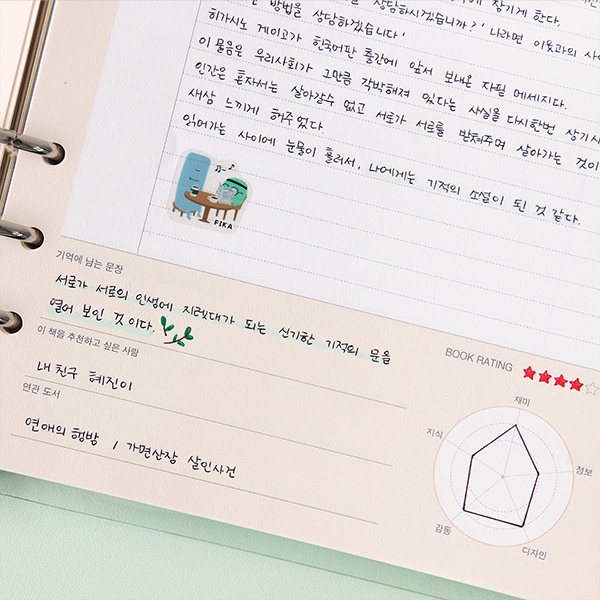 방법을 상담하시겠습니까?' 나라면 이웃과의
방법을 상담하겠습니다'
히가시노 게이고가 한국어판 출간에 앞서 보내온 자필 메세지다.
이 물음은 우리사회가 그만큼 각박해져 있다는 사실을 다시한번 상기시
인간은 혼자서는 살아갈수 없고 서로가 서로를 받쳐주며 살아가는 것이
새삼 느끼게 해주었다
읽어가는 사이에 눈물이 흘러서, 나에게는 기적의 소설이 된 것 같다.
FIKA
기억에 남는 문장
서로가 서로의 인생에 지렛대가 되는 신기한 기적의 문을
열어 보인 것이다.
이 책을 추천하고 싶은 사람
내 친구 혜진이
연관 도서
연애의 행방 / 가면산장 살인사건
BOOK RATING
재미
지식
정보
감동
디자인